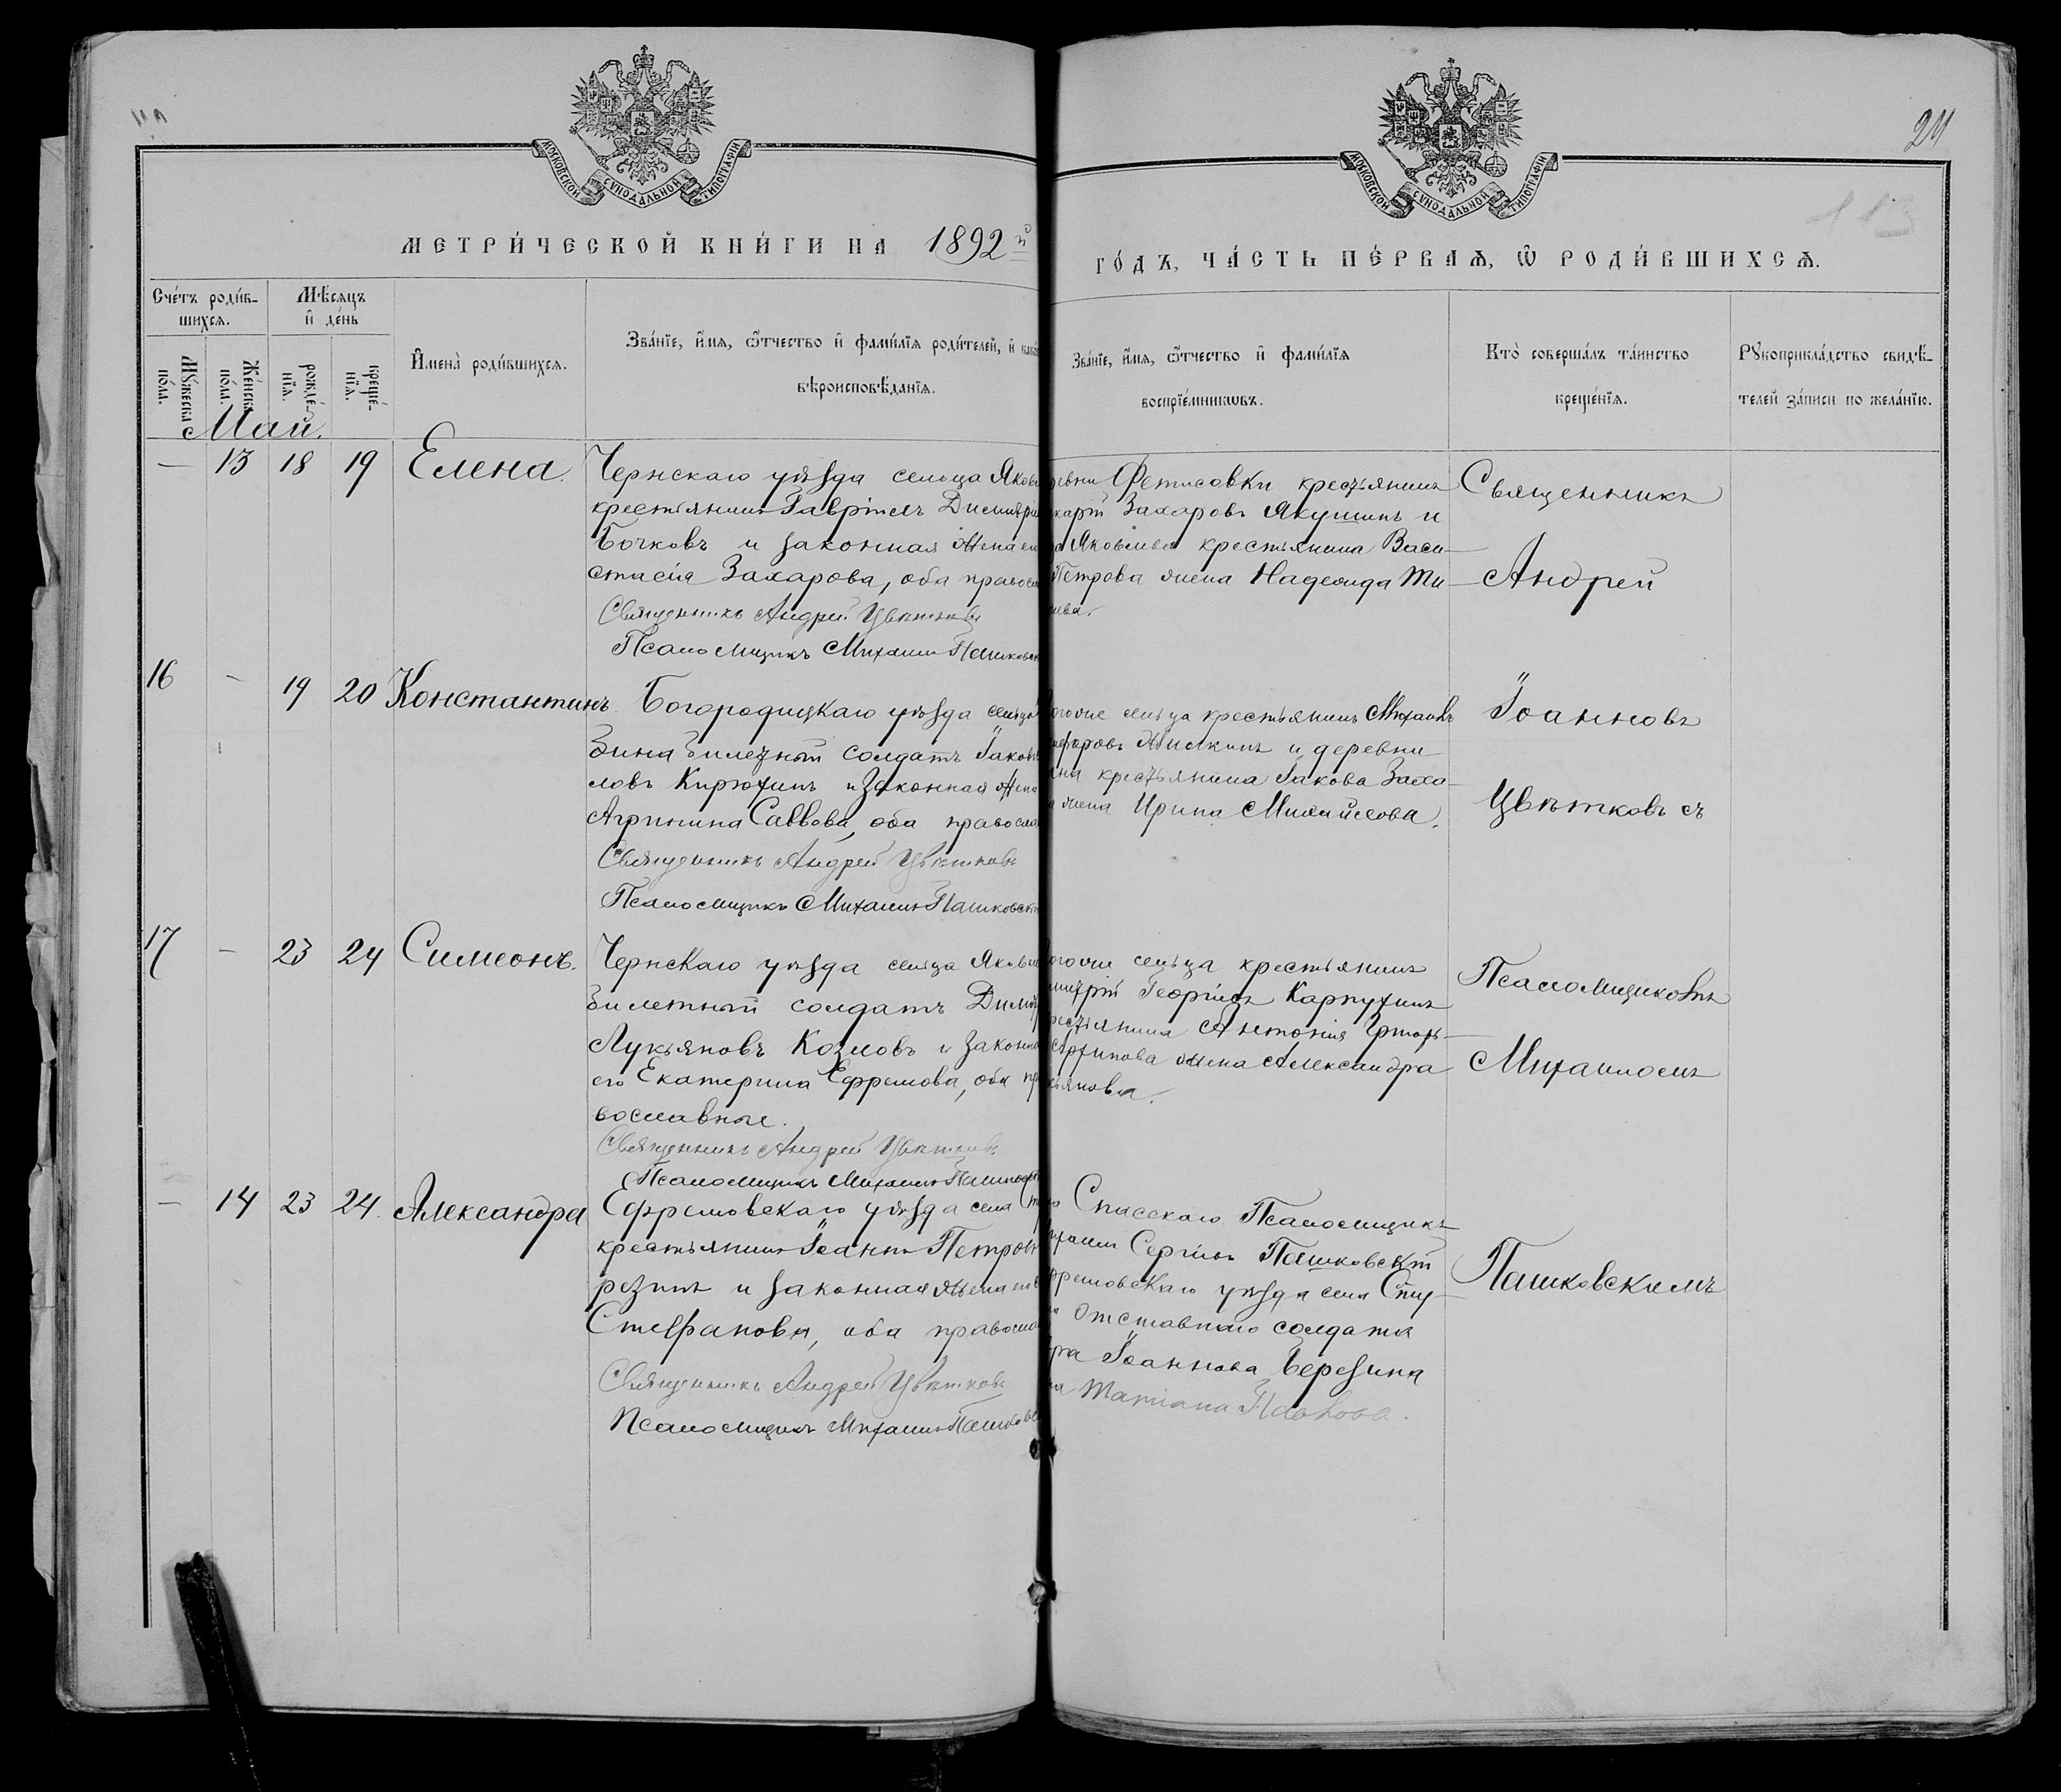 МОСКОВСКОЙ СѴНОДАЛЬНОЙ ТИПОГРАФІИ
МОСКОВСКОЙ СѴНОДАЛЬНОЙ ТИПОГРАФІИ
24
113
МЕТРИ́ЧЕСКОЙ КНИ́ГИ НА 1892й
ГО́ДЪ, ЧА́СТЬ ПЕ́РВАѦ, Ѡ РОДИ́ВШИХСѦ.
Сче́тъ роди́в-
шихсѧ.
Мꙋ́жеска по́ла.
Же́нска по́ла.
Мѣ́сѧцъ
и҆ де́нь
рожде́-
нїѧ.
креще́-
нїѧ.
И҆мена̀ роди́вшихсѧ.
Зва́нїе, и҆́мѧ, ѻ҆́тчество и҆ фами́лїѧ роди́телей, и҆
вѣроисповѣ́данїѧ.
Зва́нїе, и҆́мѧ, ѻ҆́тчество и҆ фами́лїѧ
воспрїе́мникѡвъ.
Кто̀ соверша́лъ та́инство
креще́нїѧ.
Рꙋкоприкла́дство свидѣ́-
телей за́писи по жела́нїю.
Май.
— 13 18 19 Елена.
Чернскаго уѣзда сельца Якова
крестьянинъ Гавріилъ Димитрі
Бочковъ и законная жена ег
стасія Захарова, оба правосл
Священникъ Андрей Цвѣтковъ
Псаломщикъ Михаилъ Пашковск
ревни Фетисовки крестьянинъ
карій Захаровъ Якушинъ и
а Яковлева крестьянина Васи-
Петрова жена Надежда Ти-
еева.
Священникъ
Андрей
16 — 19 20 Константинъ
Богородицкаго уѣзда сельца
Зина билетный солдатъ Іаковъ
ловъ Кирюхинъ и законная жена
Агрипина Саввова, оба правосла
Священникъ Андрей Цвѣтковъ
Псаломщикъ Михаилъ Пашковскі
огоже сельца крестьянинъ Михаилъ
ифоровъ и деревни
крестьянина Іакова Заха-
а жена Ирина
Іоанновъ
Цвѣтковъ съ
17 — 23 24 Симеонъ.
Чернскаго уѣзда сельца Яковл
билетный солдатъ Димит
Лукьяновъ Козловъ и законна
его Екатерина Ефремова, оба пр
вославные.
Священникъ Андрей Цвѣтковъ
Псаломщикъ Михаилъ Пашковск
огоже сельца крестьянинъ
митрій Георгіевъ Карпухинъ
рестьянина Антонія Григорь-
Архипова жена Александра
кьянова.
Псаломщикомъ
Михаиломъ
— 14 23 24. Александра
Ефремовскаго уѣзда села
крестьянинъ Іоаннъ Петровъ
резинъ и законная жена его
Стефанова, оба правосла
Священникъ Андрей Цвѣтковъ
Псаломщикъ Михаилъ Пашковс
Спасскаго Псаломщикъ
ихаилъ Сергіевъ Пашковскій
фремовскаго уѣзда села
отставнаго солдата
ра Іоаннова Березина
на Татіана Павлова.
Пашковскимъ